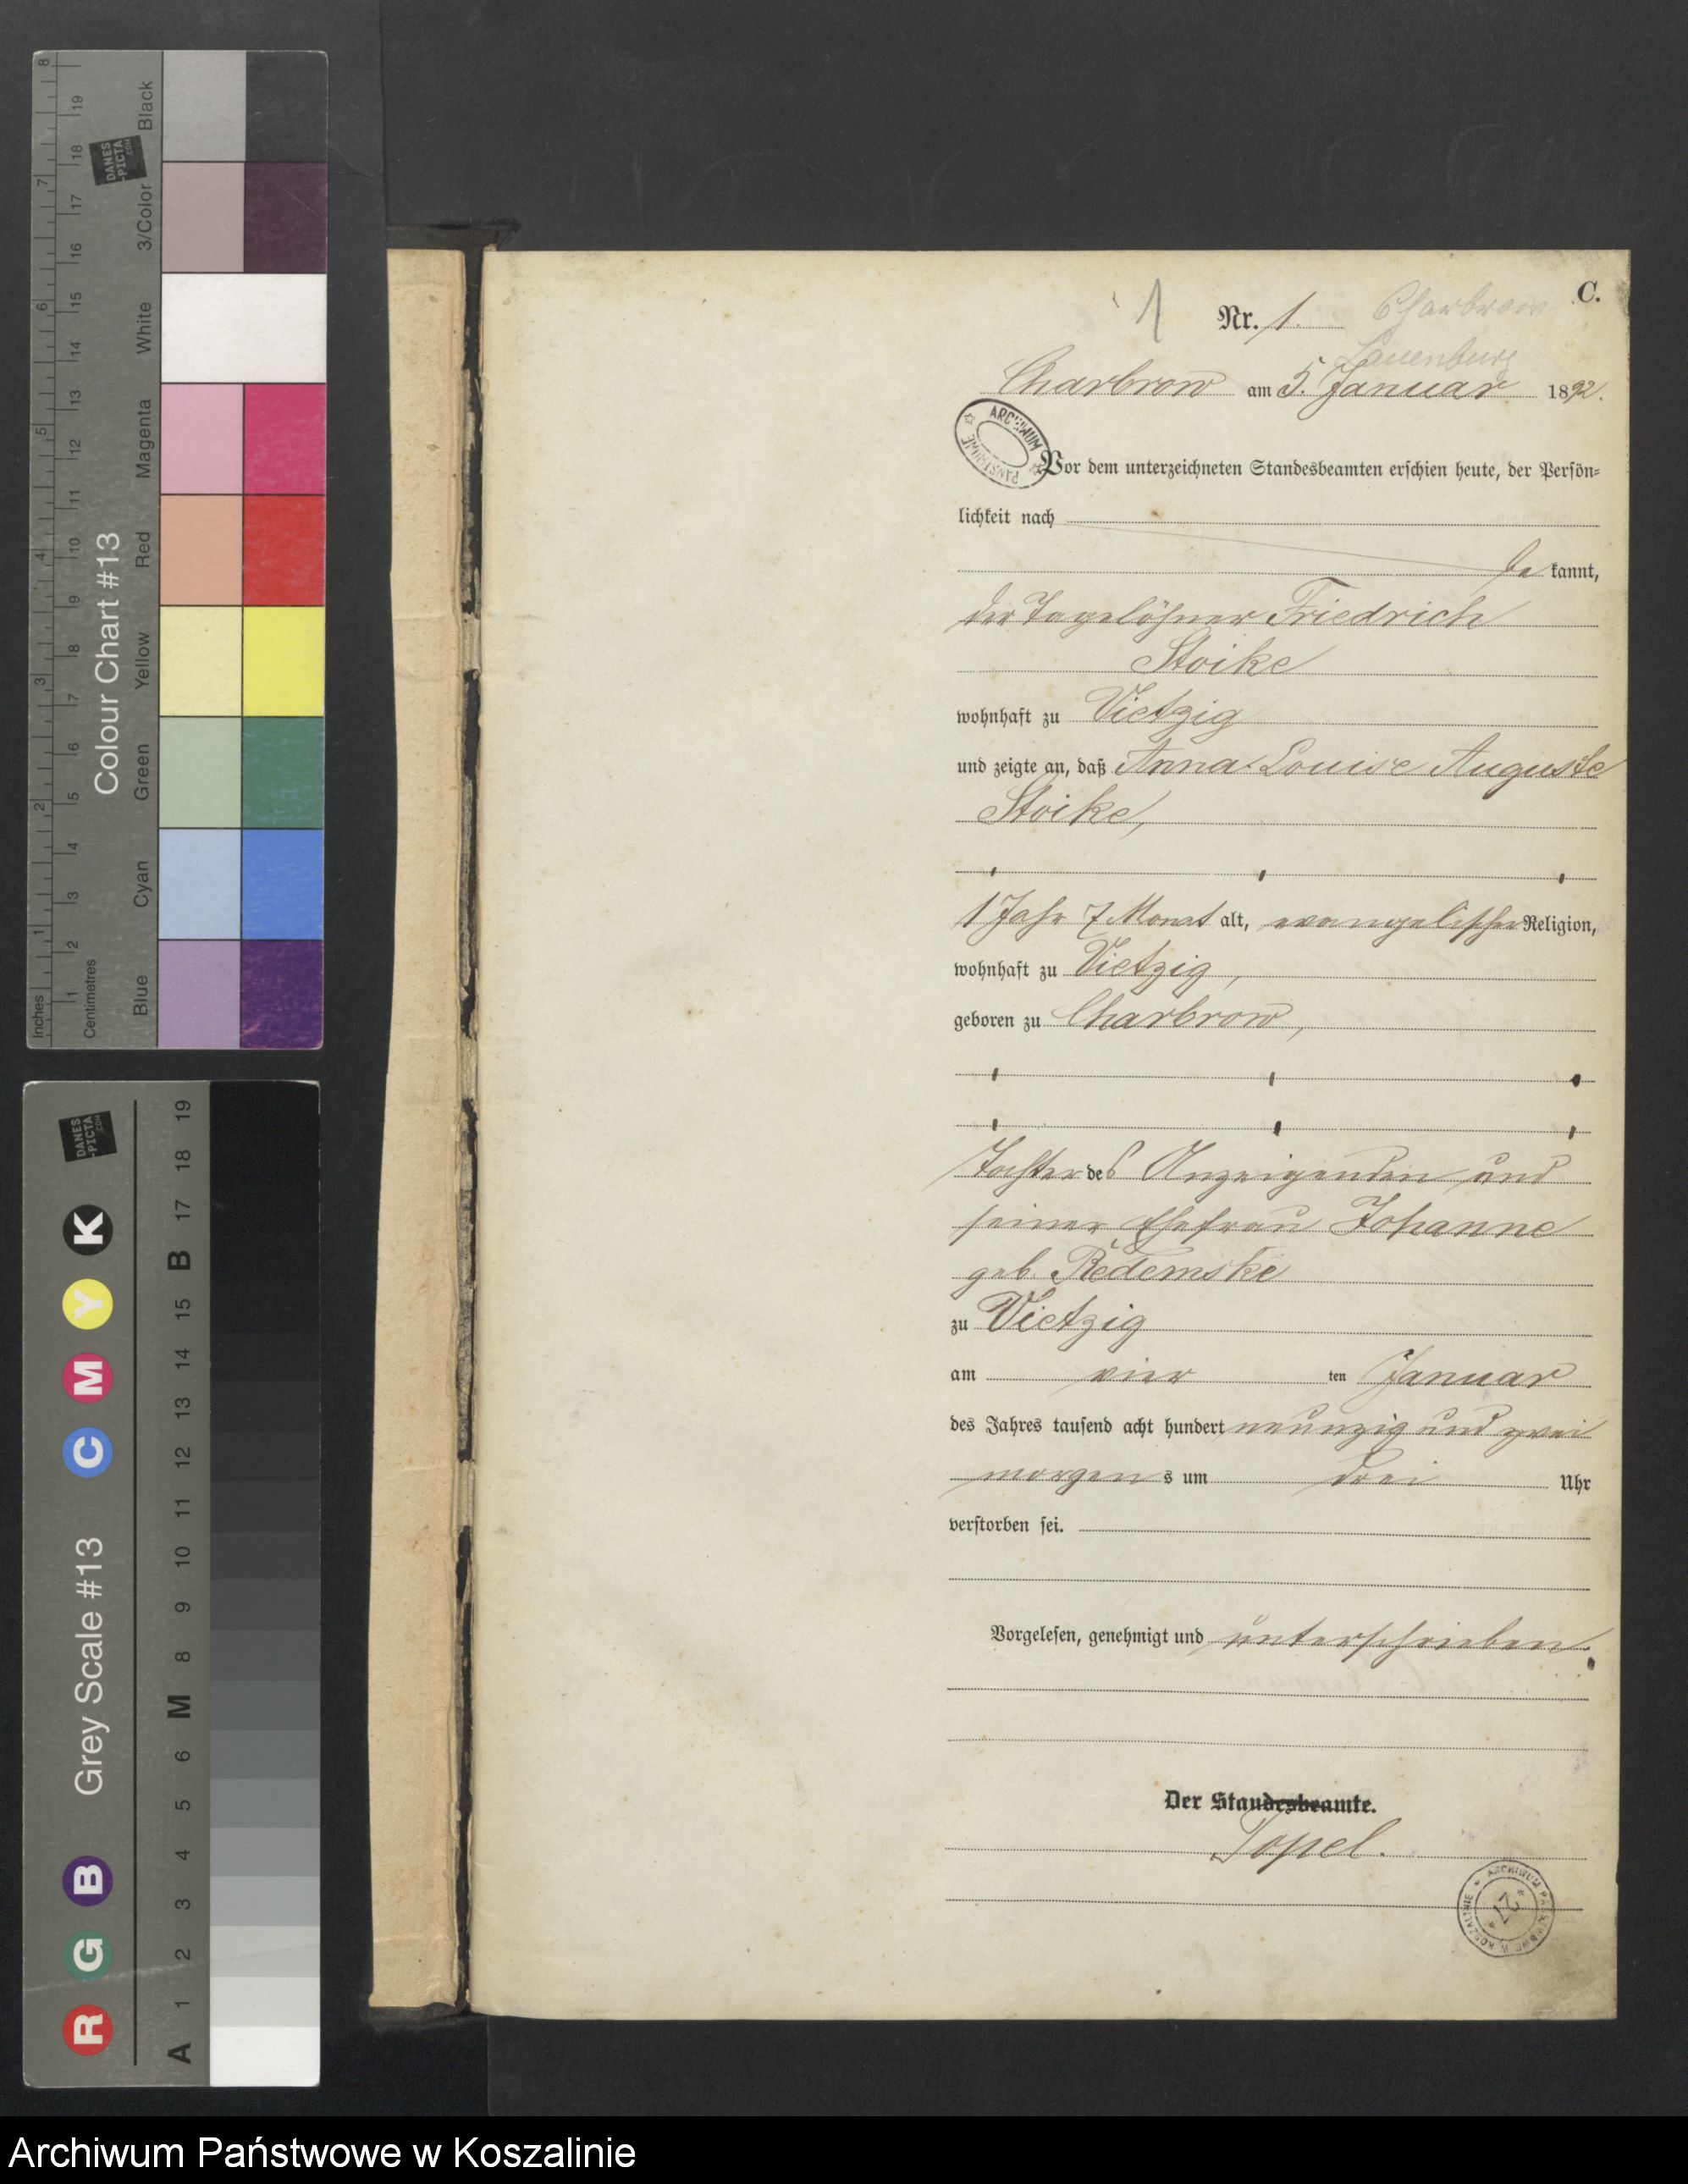 C.
1
Nr. 1.
Charbrow
Lauenburg
Charbrow am 5. Januar 1892.
Vor dem unterzeichneten Standesbeamten erschien heute, der Persön=
lichkeit nach
be kannt,
der Tagelöhner Friedrich
Stoike
wohnhaft zu Vietzig
und zeigte an, daß Anna Louise Auguste
Stoike,
1 Jahr 7 Monat alt, evangelischer Religion,
wohnhaft zu Vietzig,
geboren zu Charbrow,
Tochter des Anzeigenden und
seiner Ehefrau Johanne
geb. Redemske
zu Vietzig
am vier ten Januar
des Jahres tausend acht hundert neunzig und zwei
morgen s um drei Uhr
verstorben sei.
Vorgelesen, genehmigt und unterschrieben.
Der Standesbeamte.
Topel.
ARCHIWUM PAŃSTWOWE
ARCHIWUM PAŃSTWOWE W KOSZALINIE
Colour Chart #13
Black
3/Color
White
Magenta
Red
Yellow
Green
Cyan
Blue
Inches
1 2 3 4 5 6 7 8
Centimetres
1 2 3 4 5 6 7 8 9 10 11 12 13 14 15 16 17 18 19
DANES
-PICTA
.COM
Grey Scale #13
R G B C M Y K
A 1 2 3 4 5 6 M 8 9 10 11 12 13 14 15 B 17 18 19
DANES
-PICTA
.COM
Archiwum Państwowe w Koszalinie